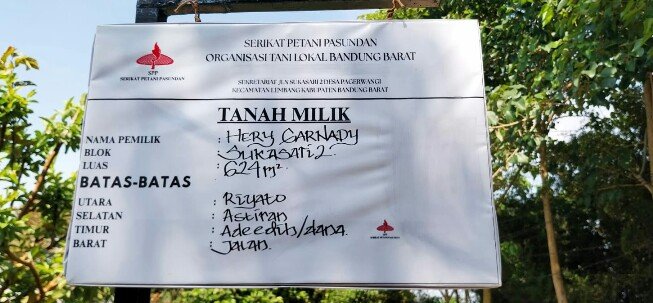 SERIKAT PETANI PASUNDAN
ORGANISASI TANI LOKAL BANDUNG BARAT
SPP
SERIKAT PETANI PASUNDAN
SEKRETARIAT JLN SUKASARI 2 DESA PAGERWANGI
KECAMATAN LEMBANG KABUPATEN BANDUNG BARAT
TANAH MILIK
NAMA PEMILIK : HERY GARNADY
BLOK : SUKASARI 2
LUAS : 624 m²
BATAS-BATAS
UTARA : Riyato
SELATAN : Astiran
TIMUR : Ade edih/dana
BARAT : Jalan
SERIKAT PETANI PASUNDAN